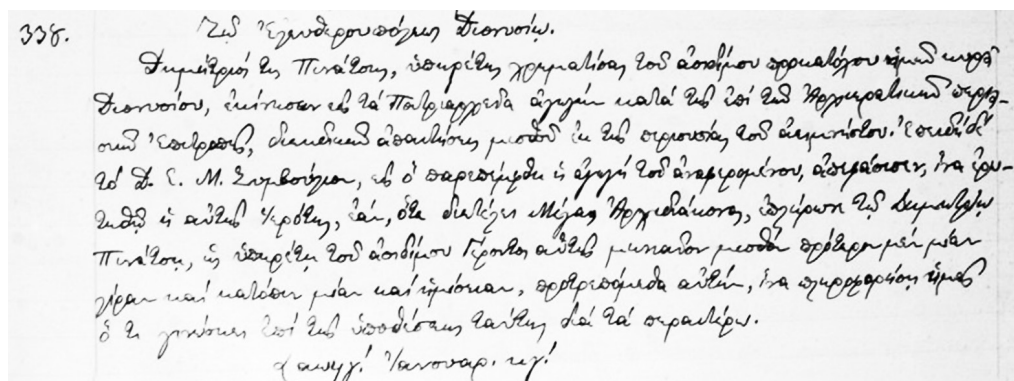 338.
Τῷ Ἐλευθερουπόλεως Διονυσίῳ.
Δημήτριός τις Πινάτσης, ὑπηρέτης χρηματίσας τοῦ ἀοιδίμου προκατόχου ὑμῶν κυροῦ
Διονυσίου, ἐκίνησεν εἰς τὰ Πατριαρχεῖα ἀγωγὴν κατὰ τῆς ἐπὶ τῶν Ἀρχιερατικῶν περιου-
σιῶν Ἐπιτροπῆς, διεκδικῶν ἀπαιτήσεις μισθοῦ ἐκ τῆς περιουσίας τοῦ ἀειμνήστου. Ἐπειδὴ δὲ
τὸ Δ. Ε. Μ. Συμβούλιον, εἰς ὃ παρεπέμφθη ἡ ἀγωγὴ τοῦ ἀναφερομένου, ἀπεφάσισεν, ἵνα ἐρω-
τηθῇ ἡ αὐτῆς Ἱερότης, ἐάν, ὅτε διετέλει Μέγας Ἀρχιδιάκονος, ἐπλήρωνε τῷ Δημητρίῳ
Πινάτσῃ, ὡς ὑπηρέτῃ τοῦ ἀοιδίμου Γέροντος αὐτῆς μηνιαῖον μισθὸν πρότερον μὲν μίαν
λίραν καὶ κατόπιν μίαν καὶ ἡμίσειαν, προτρεπόμεθα αὐτήν, ἵνα πληροφορήσῃ ἡμᾶς
ὅ τι γινώσκει ἐπὶ τῆς ὑποθέσεως ταύτης διὰ τὰ περαιτέρω.
Ἰανουαρ. κγ΄